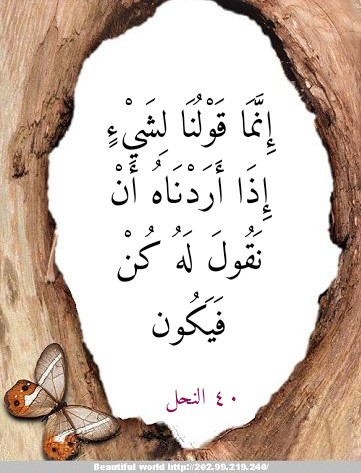 إِنَّمَا قَوْلُنَا لِشَيْءٍ
إِذَا أَرَدْنَاهُ أَنْ
نَقُولَ لَهُ كُنْ
فَيَكُون
٤٠ النحل
Beautiful world http://202.99.219.240/